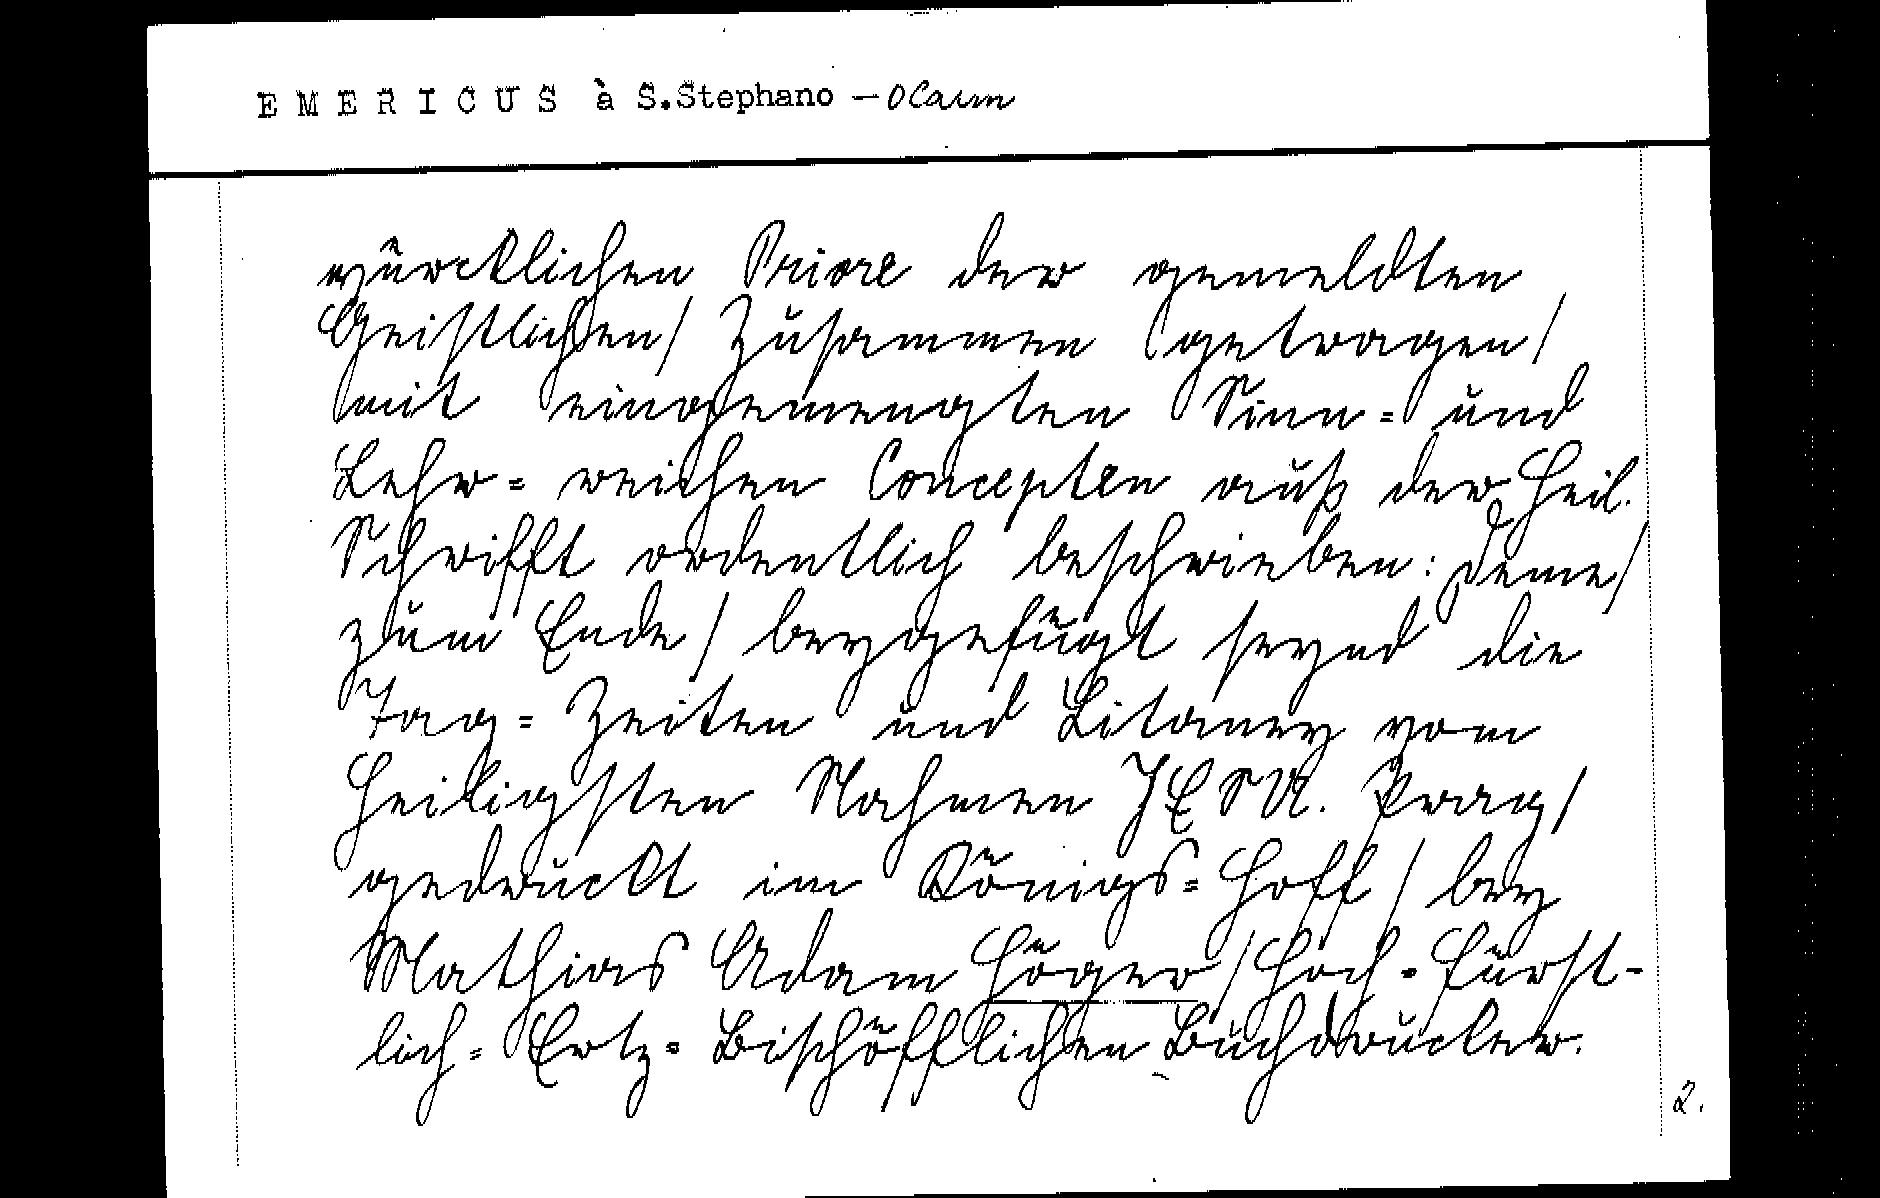 EMERICUS à S.Stephano – OCarm
würcklichen Priore der gemeldten
Geistlichen/ Zusammen getragen/
mit eingemengten Sinn= und
Lehr=reichen Concepten auß der Heil.
Schrifft ordentlich beschrieben: deme/
zum Ende/ beygefügt seynd die
Tag=Zeiten und Litaney vom
Heiligsten Nahmen JESU. Prag/
gedruckt im Königs=Hoff/ bey
Mathias Adam Höger/ Hoch=Fürst-
lich=Ertz=Bischöfflichen Buchdrucker.
2.